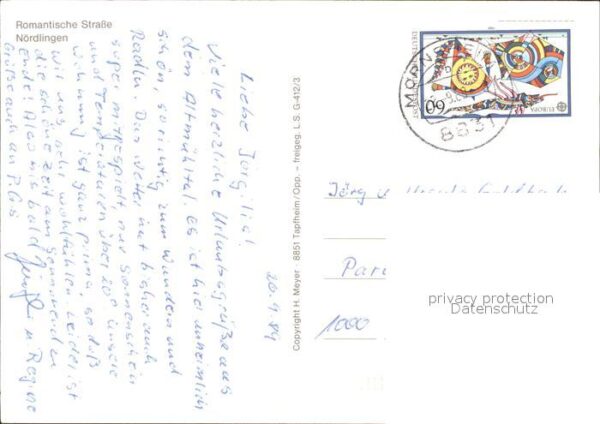 Romantische Straße
Nördlingen
20.9.89
Liebe Jörgilia!
Viele herzliche Urlaubsgrüße aus
dem Altmühltal. Es ist hier unheimlich
schön, so richtig zum Wandern und
Radln. Das Wetter hat bisher auch
super mitgespielt, nur Sonnenschein
und Temperaturen über 20° unsere
Wohnung ist ganz prima, so daß
wir uns sehr wohlfühlen. Leider ist
die schöne Zeit am Sonnabend zu
Ende! Also bis bald!
Grüße auch an
u Regine
Copyright H. Meyer 8851 Tapfheim/Opp. – freigeg. L.S. G-412/3
60
EUROPA
8831
Jörg u.
1000
privacy protection
Datenschutz